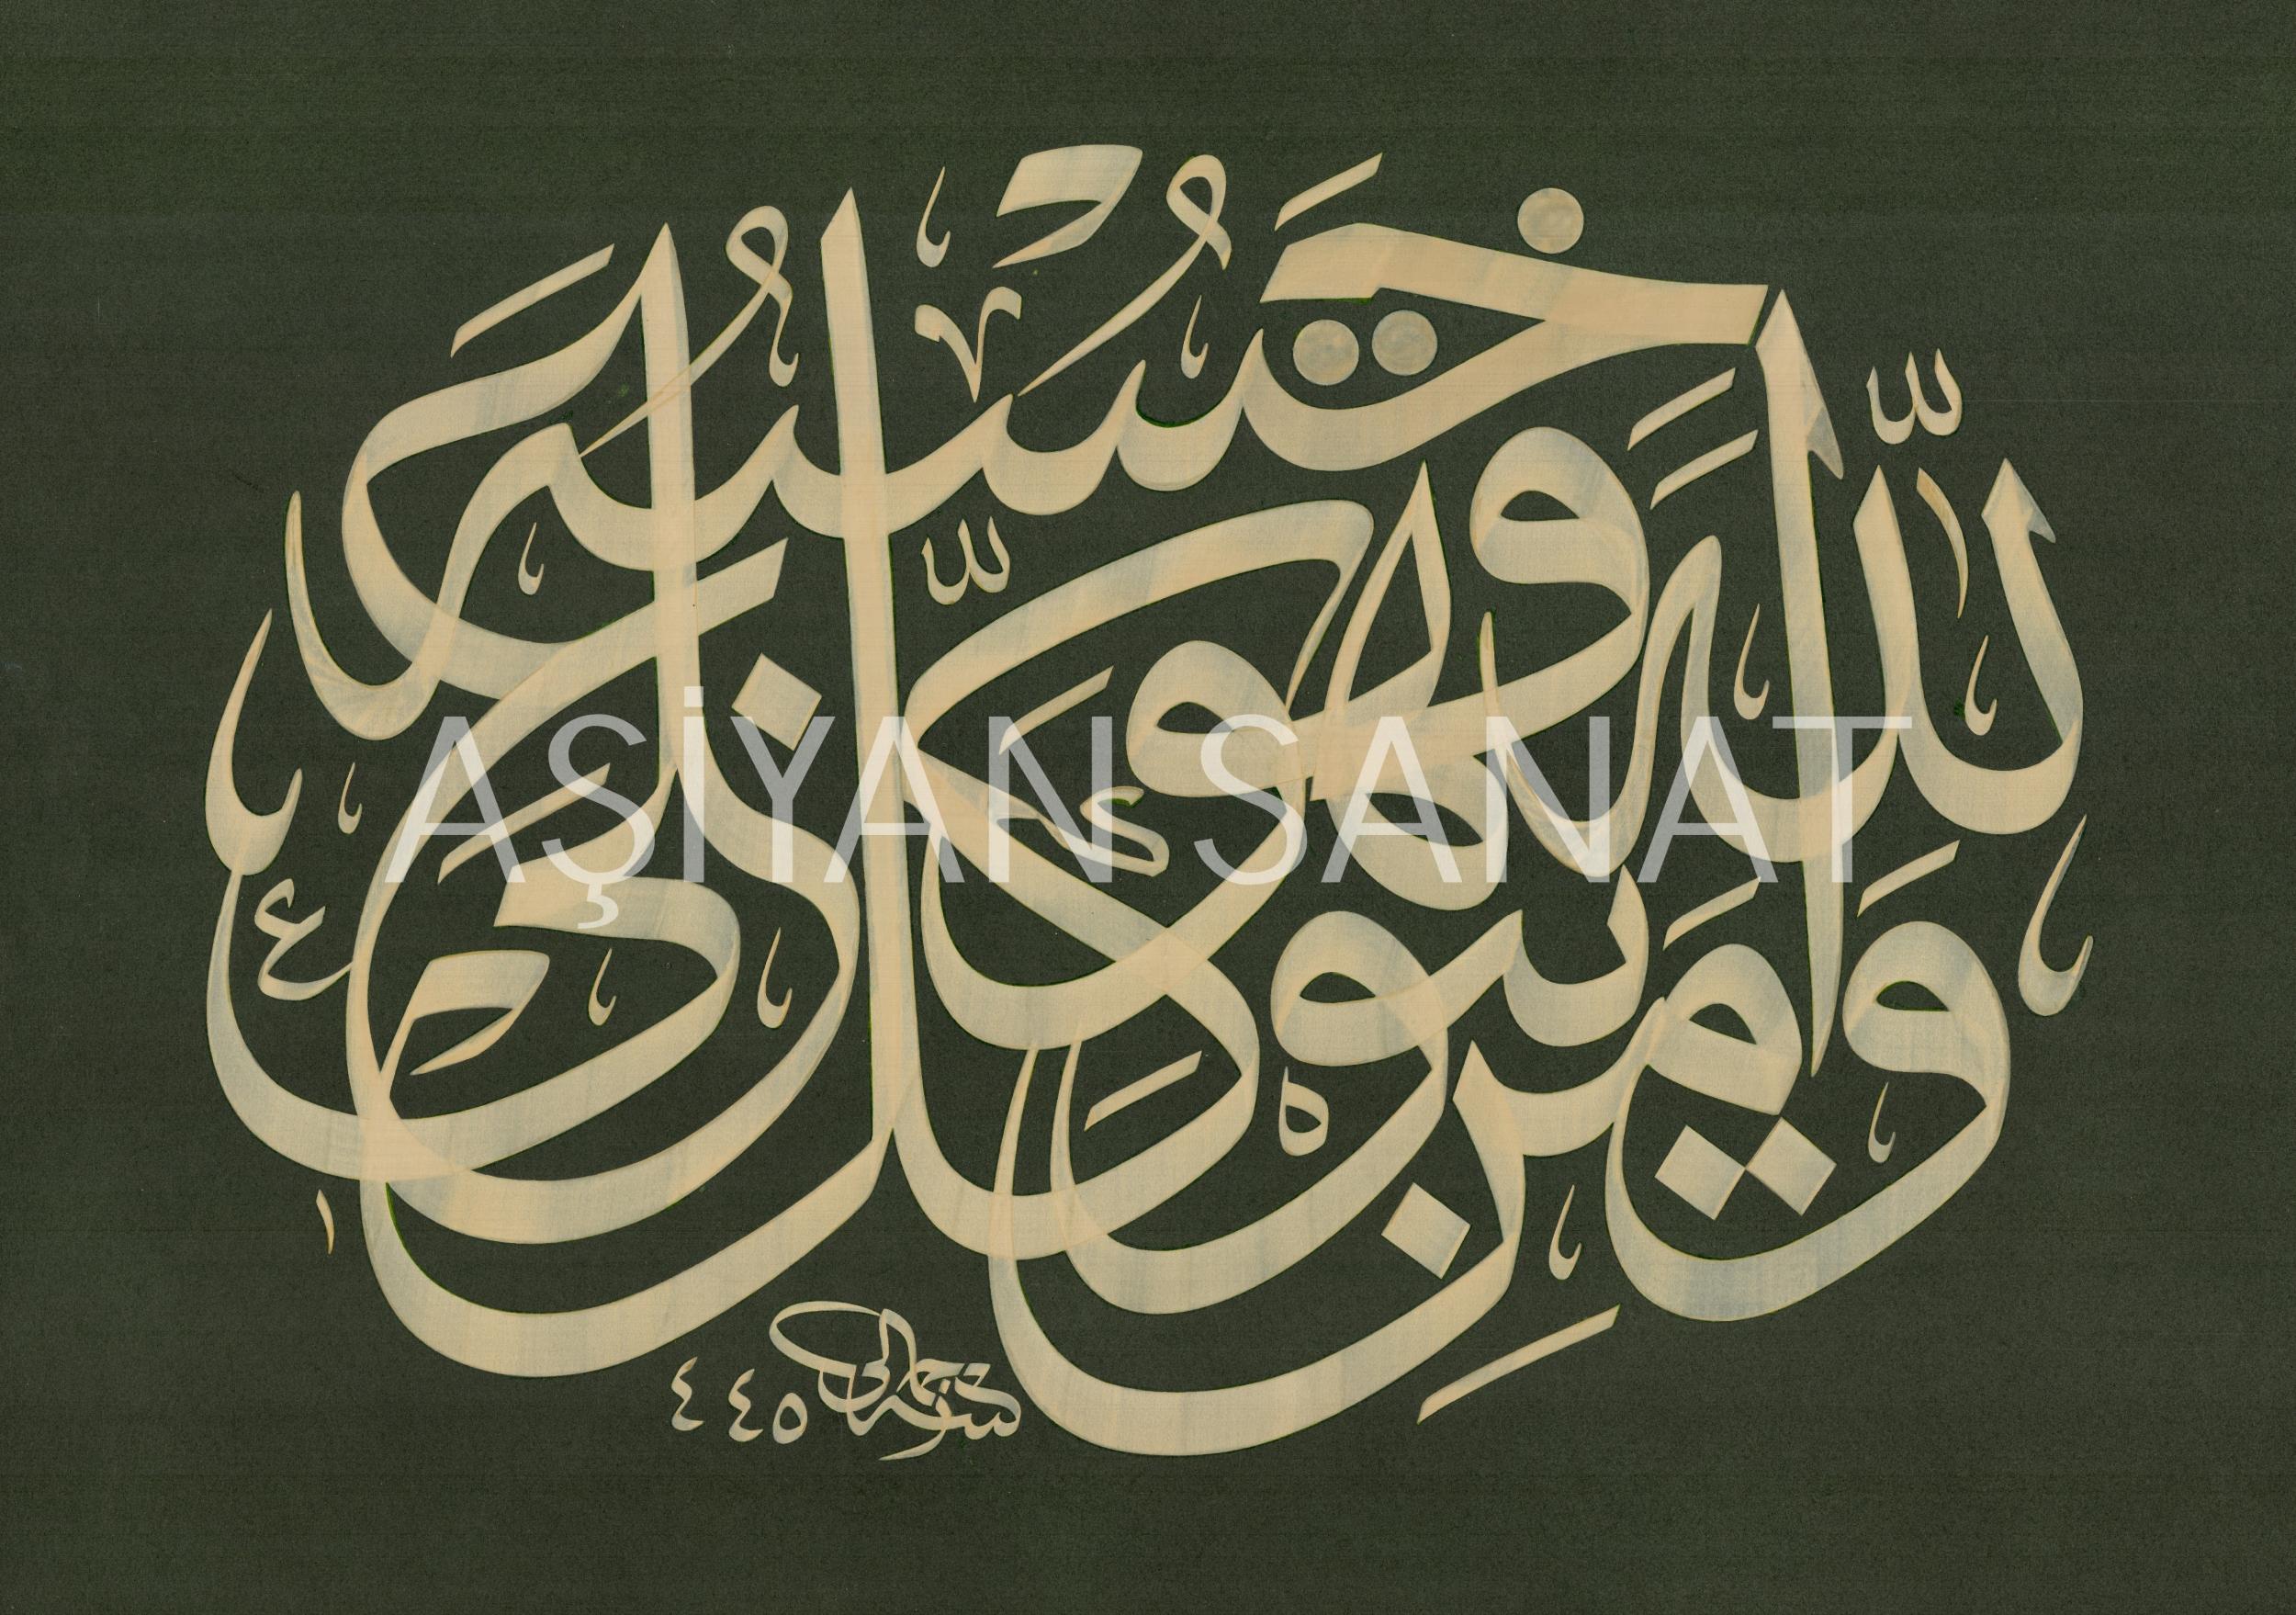 وَمَنْ يَتَوَكَّلْ عَلَى اللّٰهِ فَهُوَ حَسْبُهُ
AŞİYAN SANAT
٤٤٥